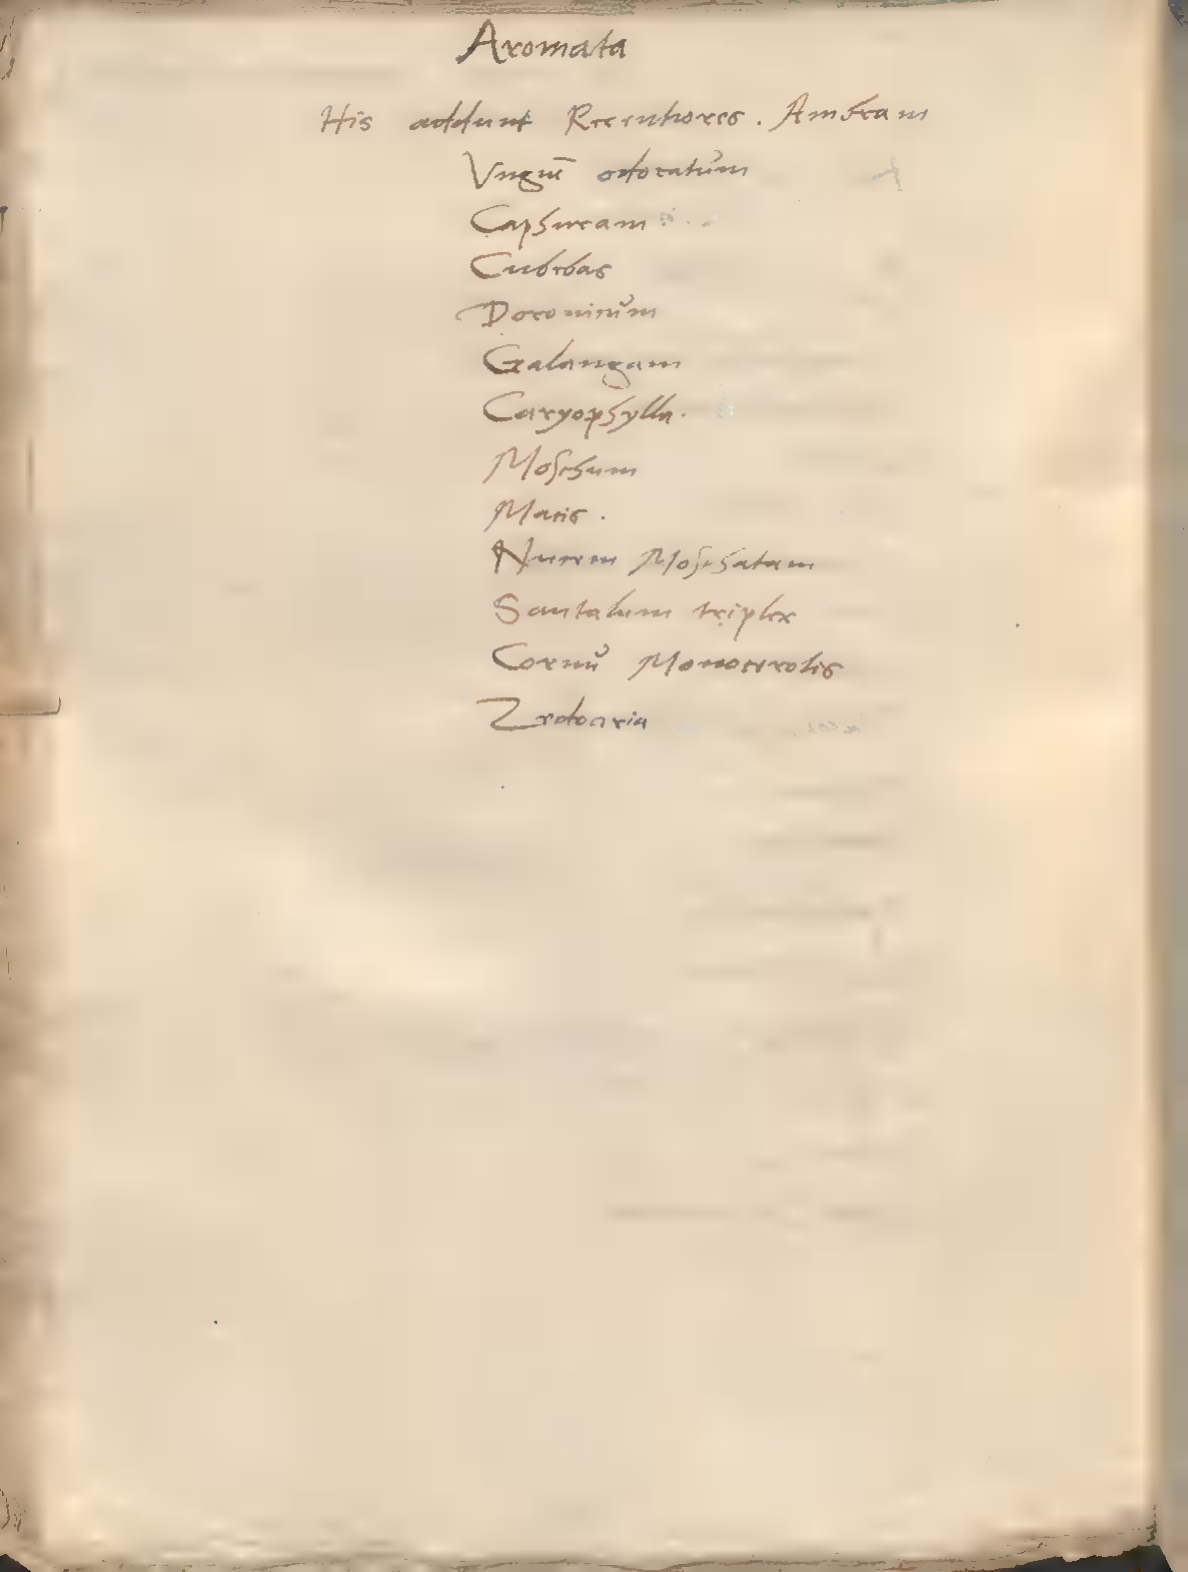 Aromata
His addunt Recentiores. Ambram
Vnguē odoratŭm
Caphuram
Cubebas
Doronicŭm
Galangam
Caryophylla.
Moschum
Macis.
Nucem Moschatam
Santalum triplex
Cornŭ Monocerotis
Zedoaria